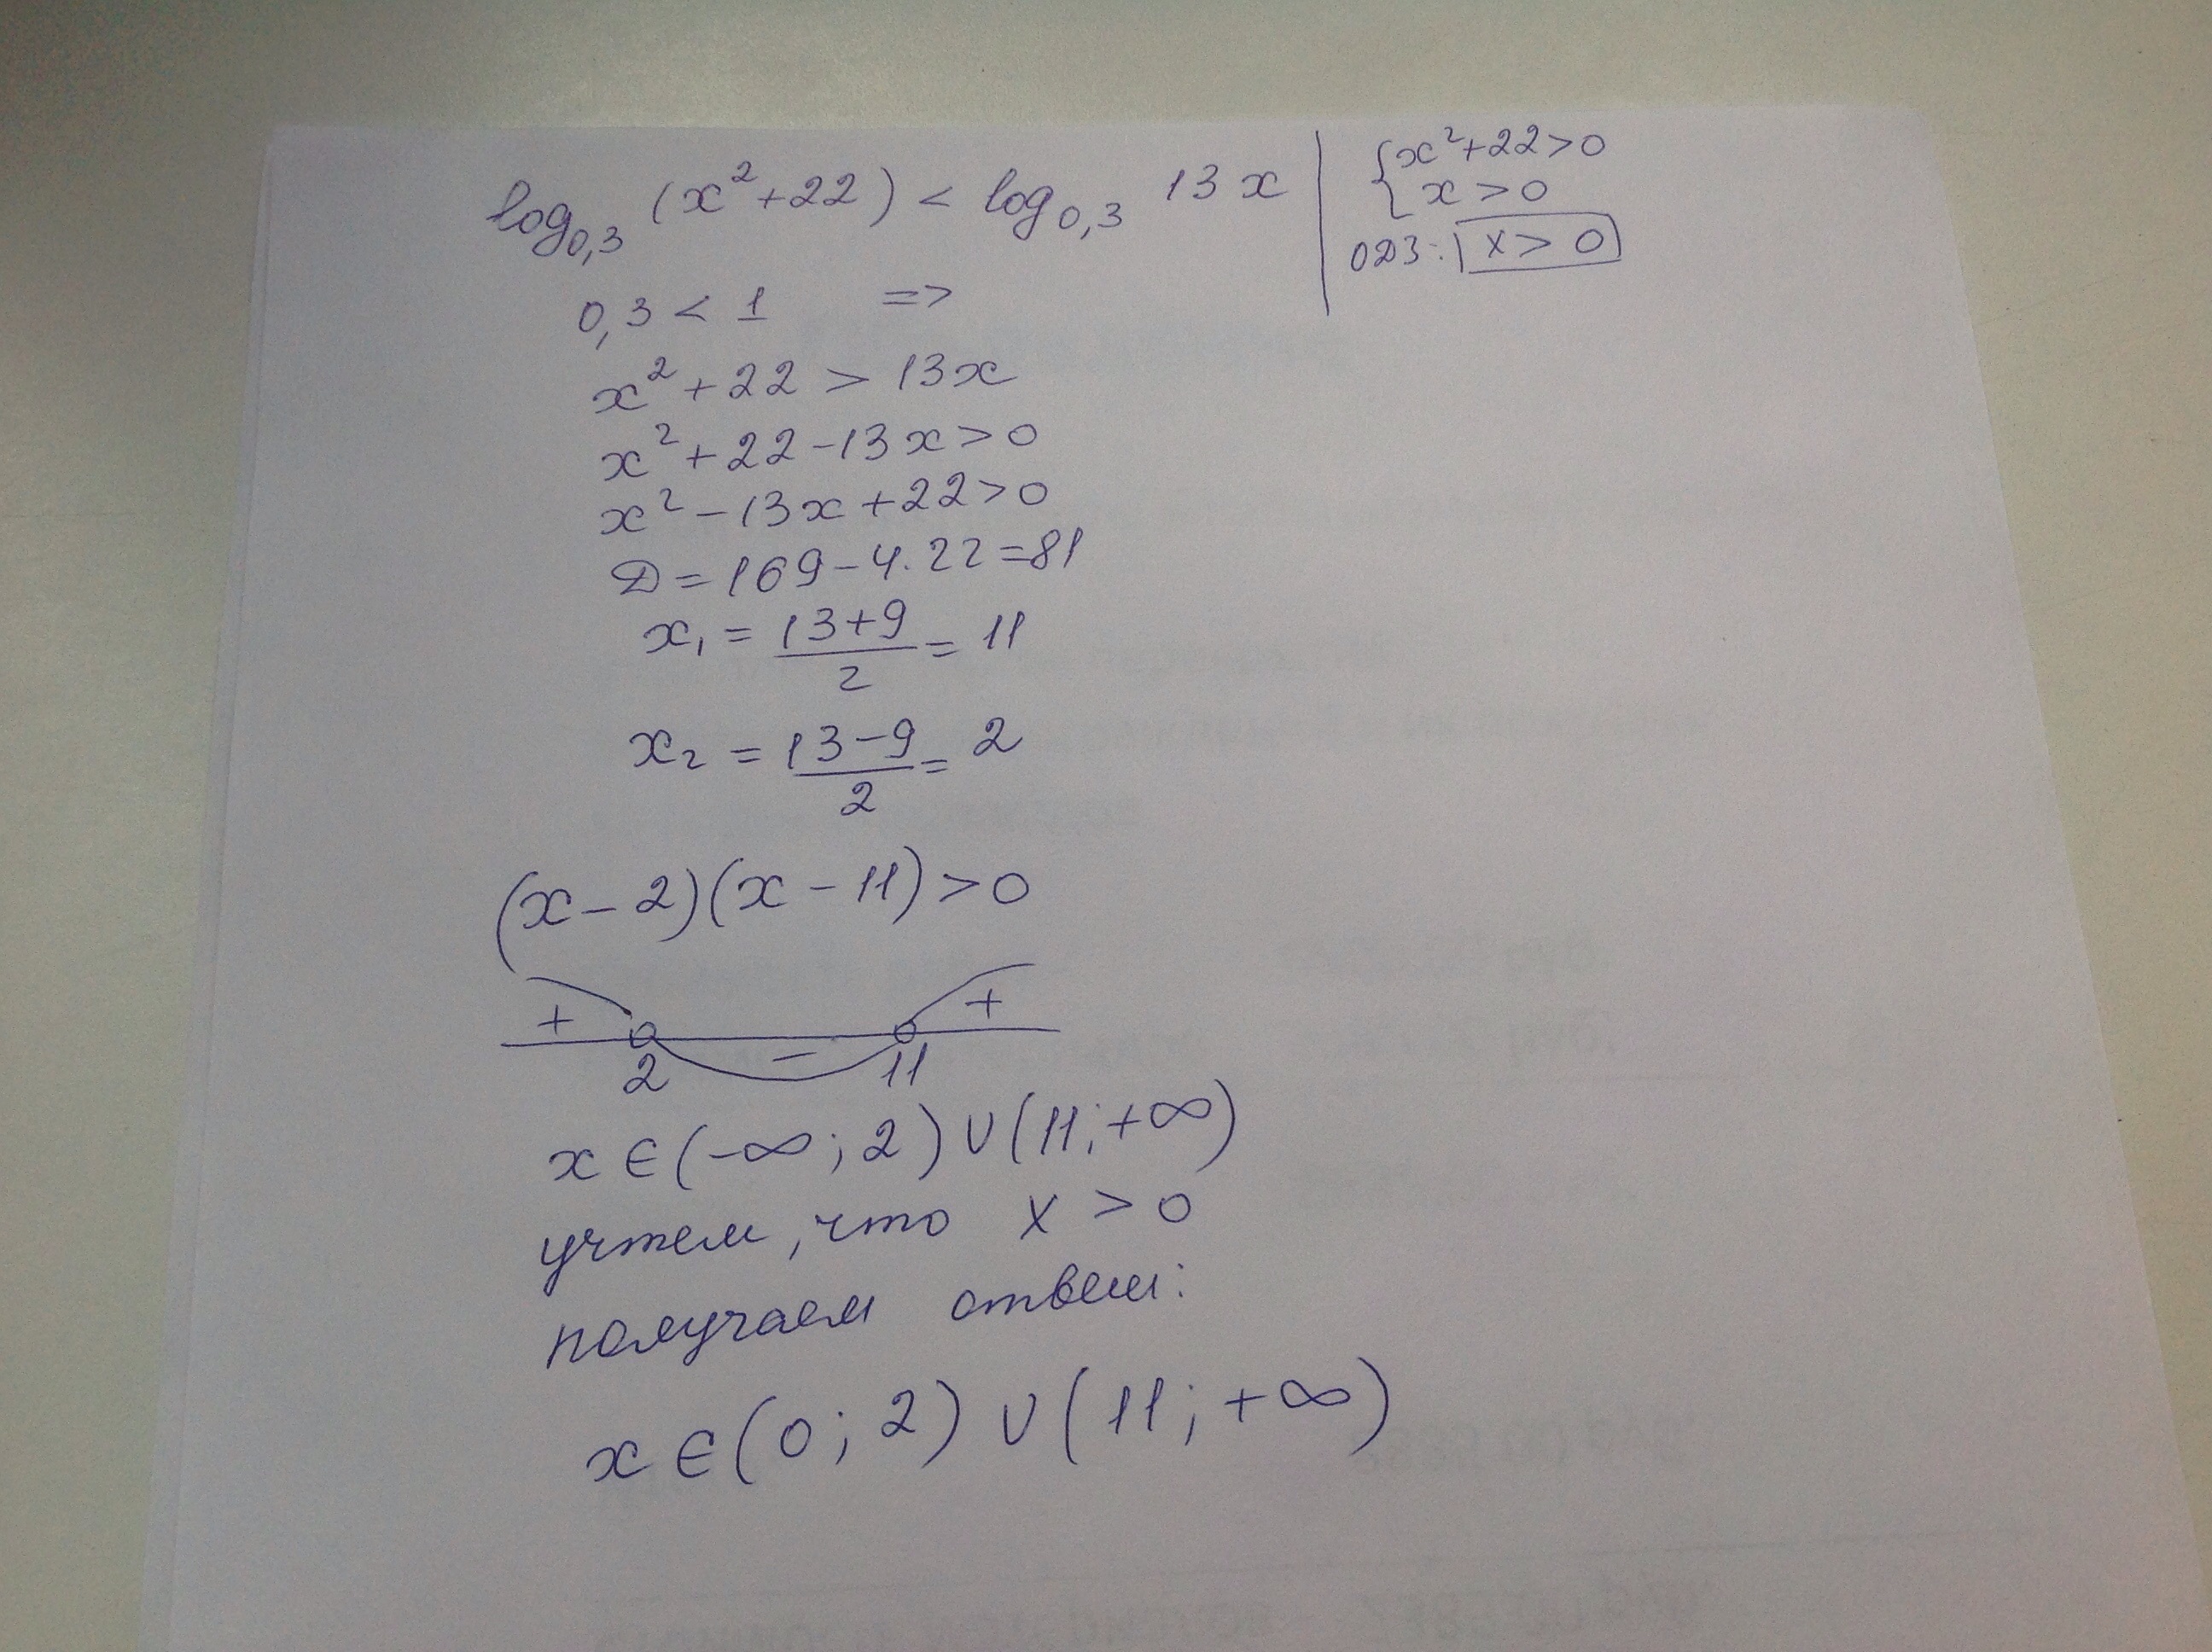 log₀,₃ (x²+22) < log₀,₃ 13x
{x²+22>0
x>0
ОДЗ: x>0
0,3 < 1 =>
x²+22 > 13x
x²+22-13x>0
x²-13x+22>0
D=169-4·22=81
x₁ = (13+9)/2 = 11
x₂ = (13-9)/2 = 2
(x-2)(x-11)>0
+ - +
2 11
x∈(-∞;2)∪(11;+∞)
учтем, что x>0
получаем ответ:
x∈(0;2)∪(11;+∞)